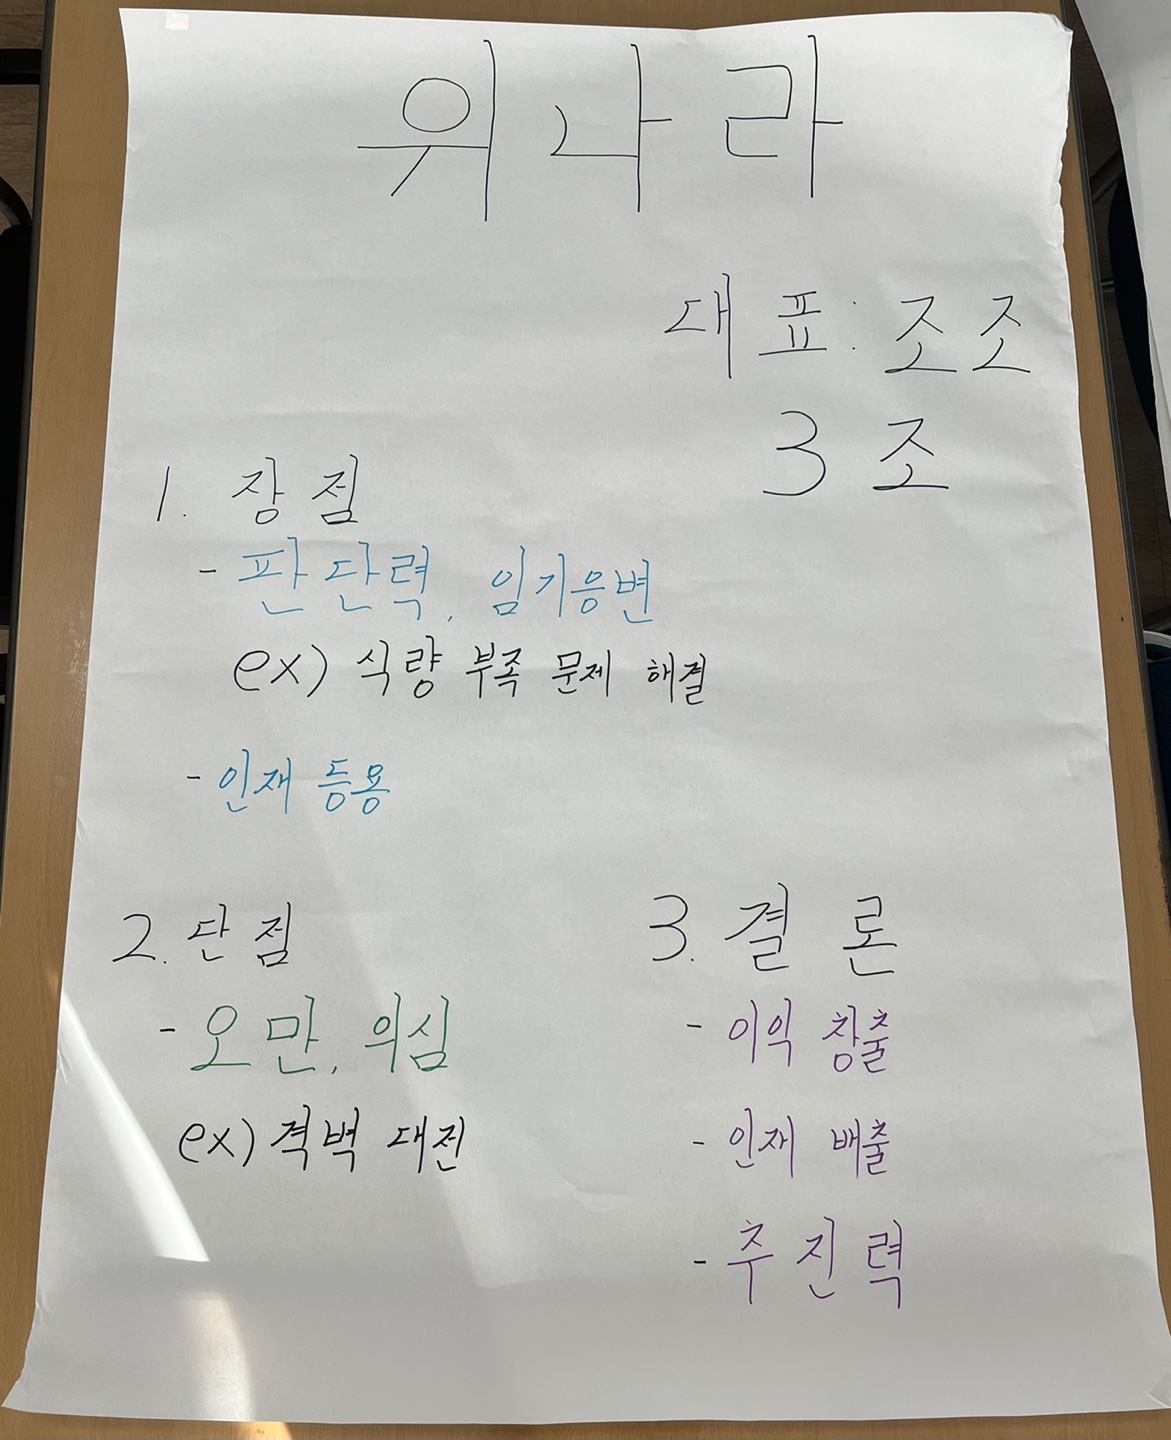 위나라
대표: 조조
3조
1. 장점
- 판단력, 임기응변
ex) 식량 부족 문제 해결
- 인재 등용
2. 단점
- 오만, 의심
ex) 적벽 대전
3. 결론
- 이익 창출
- 인재 배출
- 추진력